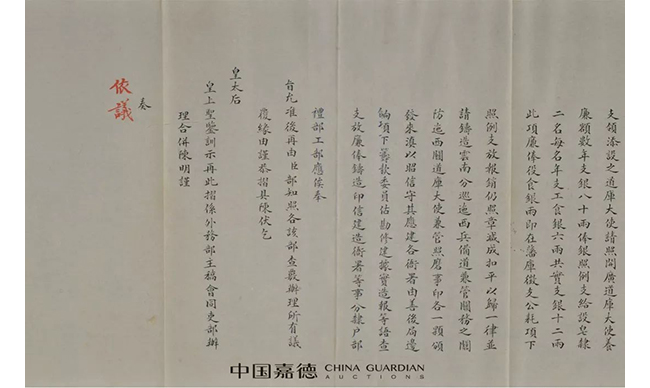 支領添設之道庫大使請照開廣道庫大使養
廉額數年支銀八十兩俸銀照例支給設皂隸
二名每名年支工食銀六兩共實支銀十二兩
此項廉俸役食銀兩即在藩庫徵支公耗項下
照例支放報銷仍照章減成扣平以歸一律並
請鑄造雲南分巡迤西兵備道兼管關務之關
防迤西關道庫大使兼管照磨事印各一顆頒
發來滇以昭信守其應建各衙署由善後局邊
餉項下籌款委員估勘修建據實造報等語查
支放廉俸鑄造印信建造衙署等事分隸戶部
禮部工部應俟奉
旨允准後再由臣部知照各該部查覈辦理所有議
覆緣由謹恭摺具陳伏乞
皇太后
皇上聖鑒訓示再此摺係外務部主稿會同吏部辦
理合併陳明謹
奏
依議
中国嘉德 CHINA GUARDIAN
AUCTIONS